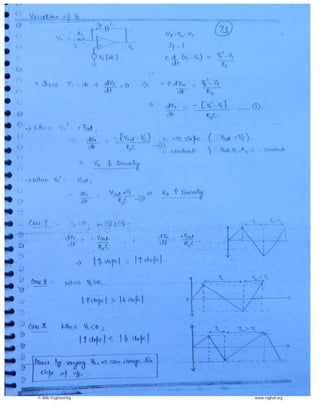 Variation of V2
73
R3
C
Vo'
Vo
V2 [dc]
If = I
C d/dt (V2 - Vo) = Vo' - V2 / R3
When V2 = dc ⇒ dV2/dt = 0 ⇒ - C dVo/dt = Vo' - V2 / R3
⇒ dVo/dt = - [Vo' - V2] / R3C
→ When Vo' = + Vsat,
dVo/dt = - [Vsat - V2] / R3C = -ve slope (∵ Vsat > V2)
= constant } ∵ Vsat, V2, R3, C = constant
⇒ Vo ↓ linearly
→ When Vo' = - Vsat,
dVo/dt = Vsat + V2 / R3C ⇒ Vo ↑ linearly
Case I :- V2 = 0, in ① & ② -
dVo/dt = - Vsat / R3C ; dVo/dt = + Vsat / R3C
⇒ |↑ slope| = |↓ slope|
Case II :- When V2 > 0,
|↑ slope| > |↓ slope|
Case III When V2 < 0 ;
|↑ slope| < |↓ slope|
Hence by varying V2, we can change the
slope of o/p.
© Wiki Engineering
www.raghul.org